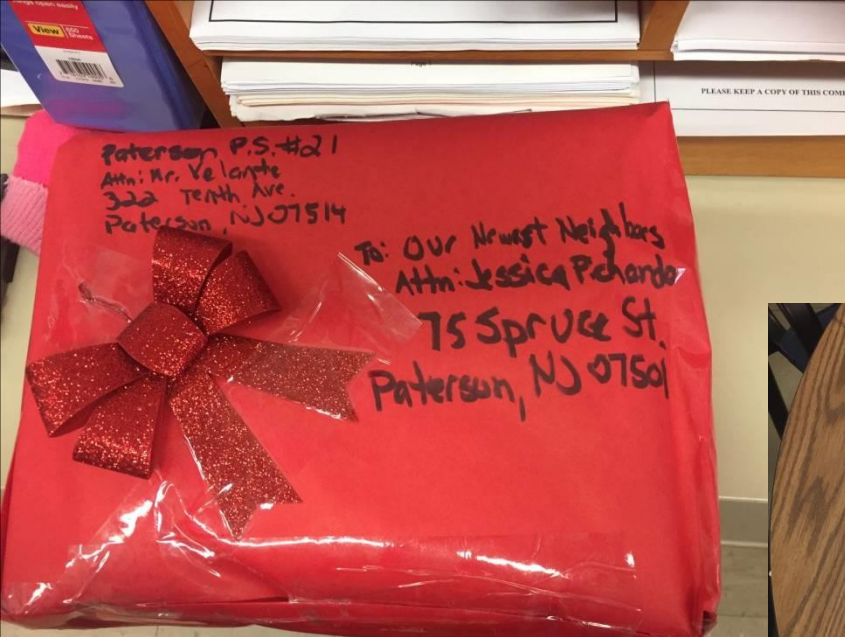 View 550
Sheets
PLEASE KEEP A COPY OF THIS COM
Paterson P.S. #21
Attn: Mr. Velante
322 Tenth Ave.
Paterson, NJ 07514
To: Our Newest Neighbors
Attn: Jessica Pchardo
75 Spruce St.
Paterson, NJ 07501